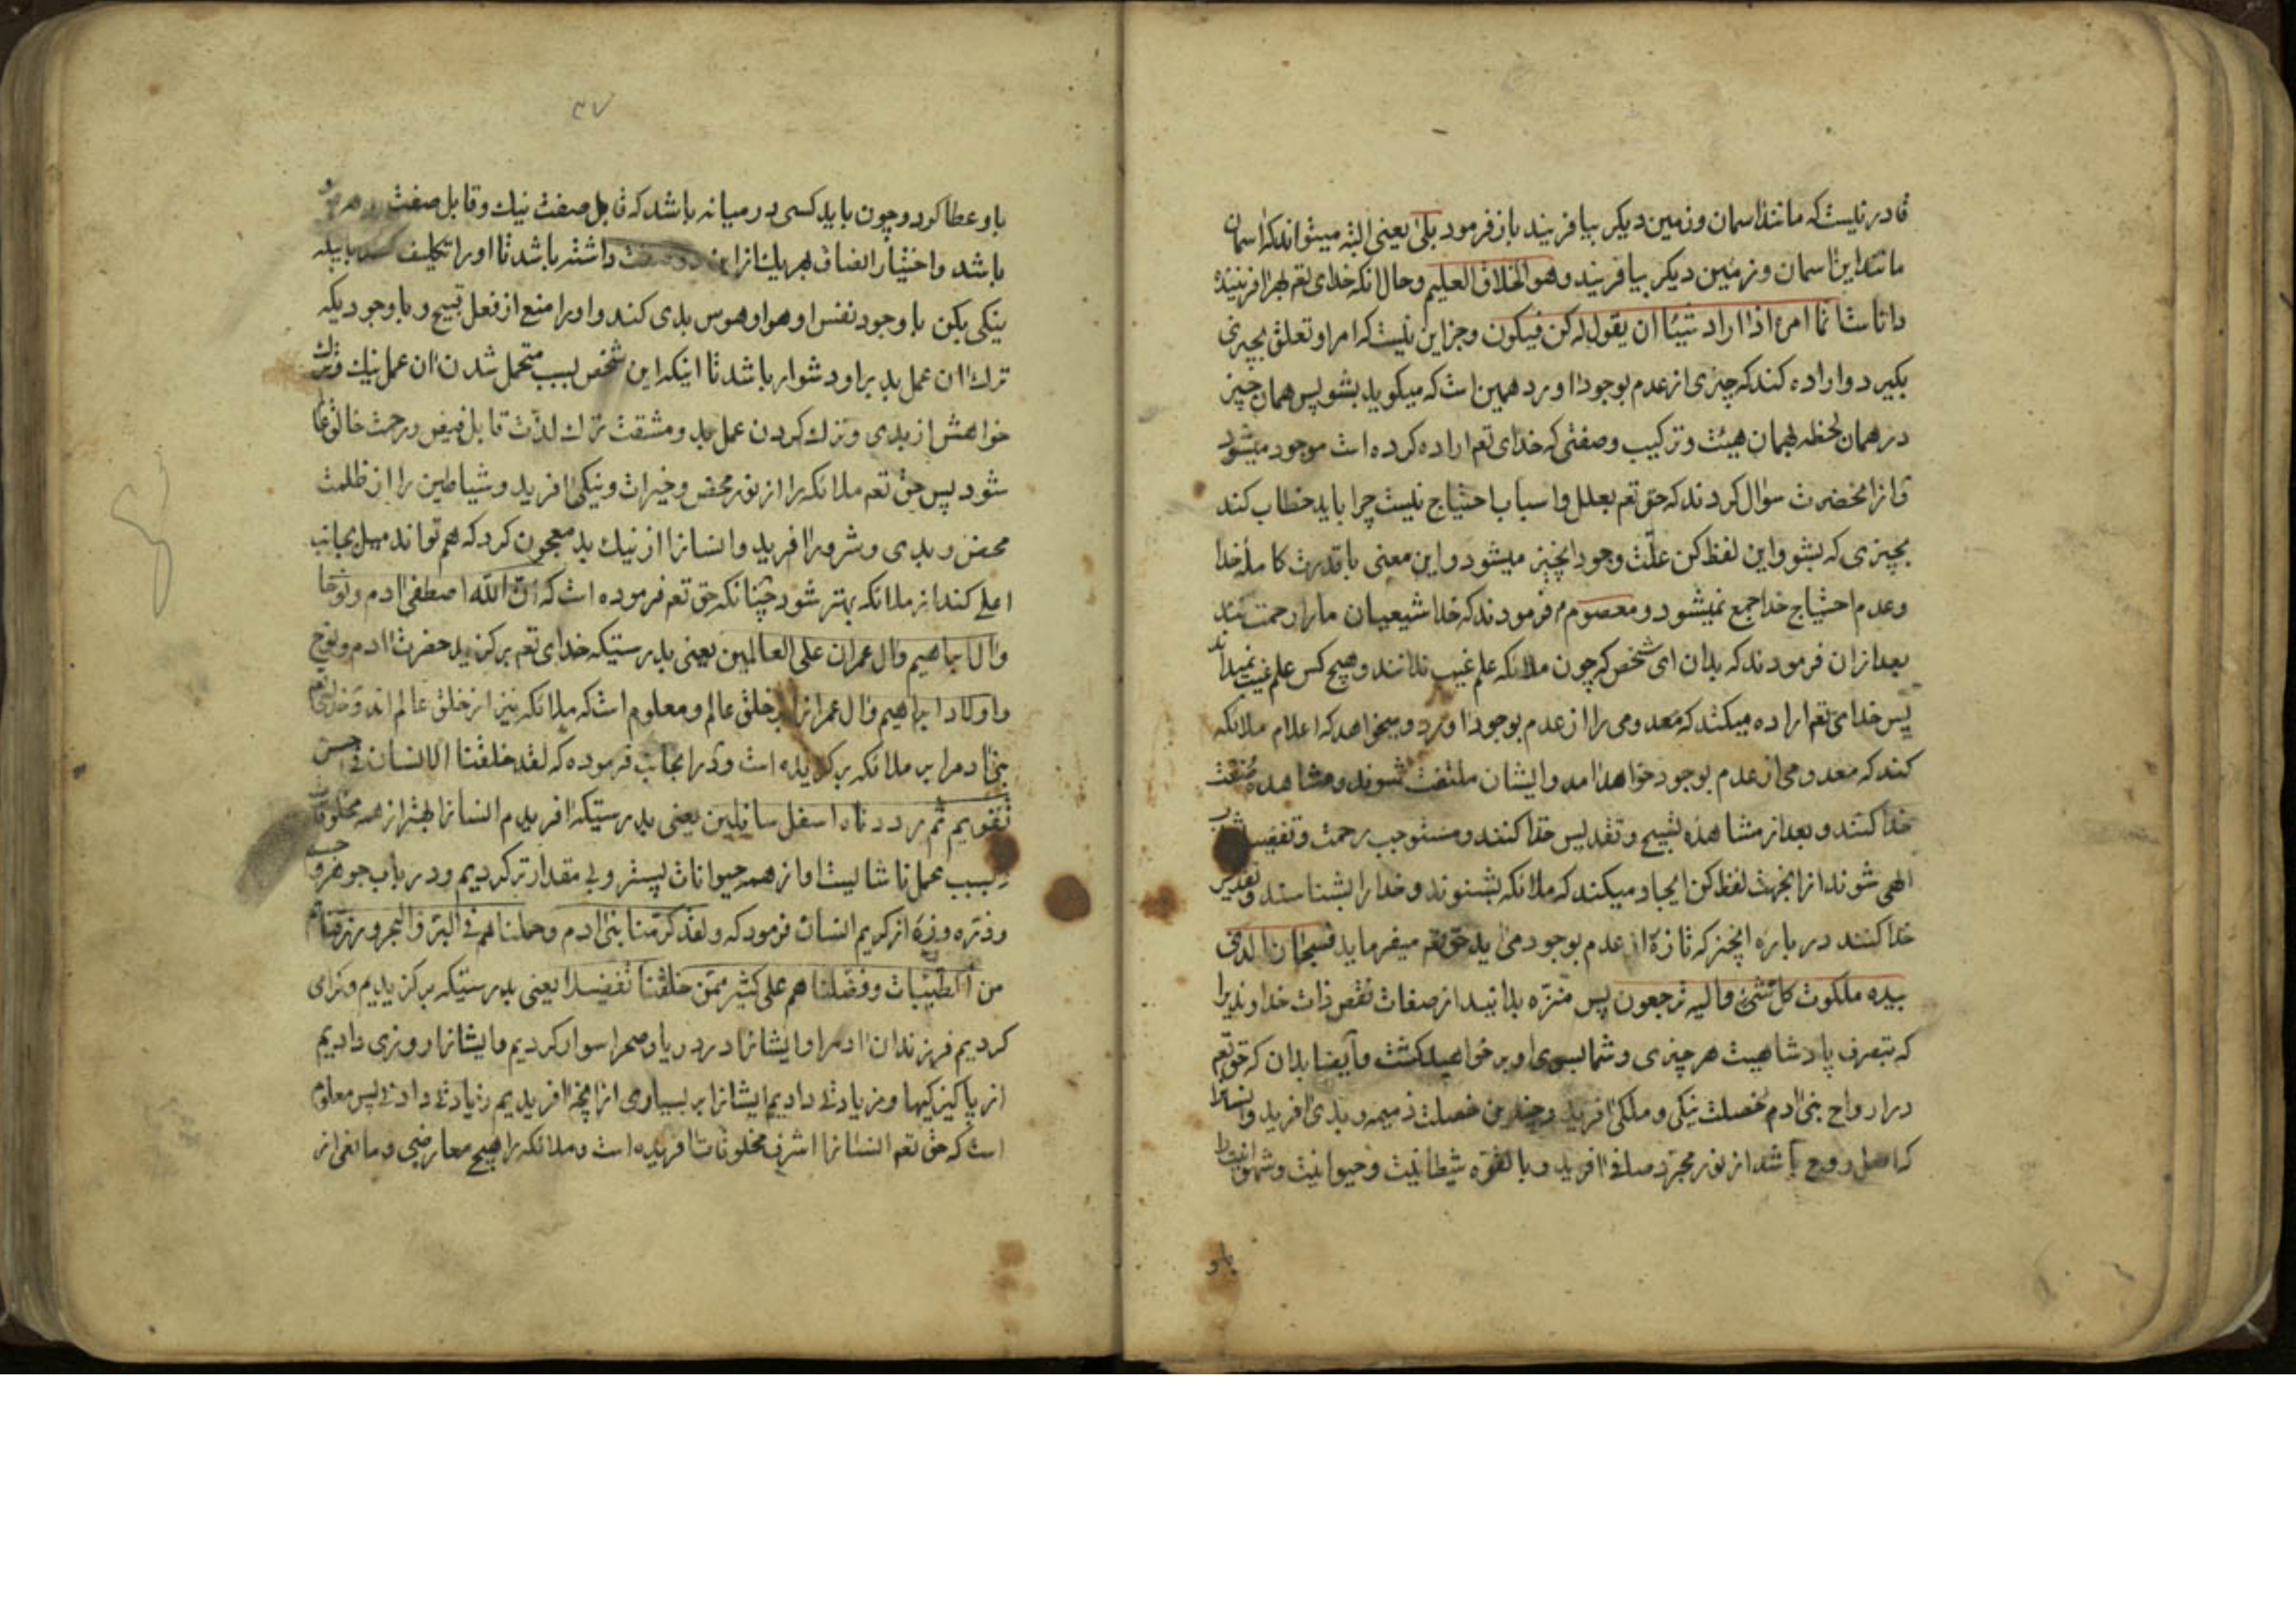 قادر نیست که مانند اسمان و زمین دیکر بیافریند باز فرمود بلی یعنی البته میتواند که اسمان
مانند این اسمان و زمین دیکر بیافریند و هو الخلاق العلیم و حال انکه خدای تعم افریننده
دانا است انما امره اذا اراد شیئا ان یقول له کن فیکون و جز این نیست که امر او تعلق بچیزی
بکیرد و اراده کند که چیزی از عدم بوجود اورد همین است که میکوید بشو پس همان چیز
در همان لحظه بهمان هیئت و ترکیب و صفتی که خدای تعم اراده کرده است موجود میشود
و از انحضرت سؤال کردند که حق تعم بعلل و اسباب احتیاج نیست چرا باید خطاب کند
بچیزی که بشو و این لفظ کن علّت وجود انچیز میشود و این معنی با قدرت کامله خدا
و عدم احتیاج خدا جمع نمیشود و معصوم م فرمودند که خدا شیعیان ما را رحمت کند
بعد از ان فرمودند که بدان ای شخص که چون ملائکه علم غیب ندانند و هیچ کس علم غیب نمیداند
پس خدای تعم اراده میکند که معدومی را از عدم بوجود اورد و میخواهد که اعلام ملائکه
کند که معدومی از عدم بوجود خواهد امد و ایشان ملتفت شوند و مشاهده صنعت
خدا کنند و بعد از مشاهده تسبیح و تقدیس خدا کنند و مستوجب رحمت و تفضیل
الهی شوند از انجهت لفظ کن ایجاد میکند که ملائکه بشنوند و خدا را بشناسند و تقدیس
خدا کنند در باره انچیز که تازه از عدم بوجود می اید حق تعم میفرماید فسبحان الذی
بیده ملکوت کل شیء و الیه ترجعون پس منزّه بدانید از صفات نقص ذات خداوندیرا
که بتصرف پادشاهیت هر چیزی و شما بسوی او برخواهید کشت و ایضا بدان که حق تعم
در ارواح بنی ادم خصلت نیکی و ملکی افرید و چندین خصلت ذمیمه و بدی افرید و انسانرا
که اصل روح باشد از نور مجرّد صافی افرید و بالقوّه شیطانیت و حیوانیت و شهوات
باو
۳۷
باو عطا کرد و چون باید کسی در میانه باشد که قابل صفت نیک و قابل صفت
باشد و اختیار انصاف بهر یک از این دو صفت داشته باشد تا او را تکلیف
نیکی بکن با وجود نفس او و هوا و هوس بدی کند و او را منع از فعل قبیح و با وجود یکه
ترک ان عمل بد بر او دشوار باشد تا اینکه این شخص بسبب متحمل شدن ان عمل نیک و ترک
خواهش از بدی و ترک کردن عمل بد و مشقت ترک لذّت قابل فیض و رحمت خالق
شود پس حق تعم ملائکه را از نور محض و خیرات و نیکی افرید و شیاطین را از ظلمت
محض و بدی و شرور افرید و انسانرا از نیک بد معجون کرد که هم تواند میل بجانب
اعلی کند از ملائکه بهتر شود چنانکه حق تعم فرموده است که انّ الله اصطفی ادم و نوحا
و ال ابراهیم و ال عمران علی العالمین یعنی بدرستیکه خدای تعم برکزید حضرت ادم و نوح
و اولاد ابراهیم و ال عمرانرا بر خلق عالم و معلوم است که ملائکه نیز از خلق عالم اند و خدای تعم
بنی ادم را بر ملائکه برکزیده است و در انجانب فرموده که لقد خلقنا الانسان فی احسن
تقویم ثم رددناه اسفل سافلین یعنی بدرستیکه افریدم انسانرا بهتر از همه مخلوقات
بسبب عمل ناشایست او از همه حیوانات پستر و بی مقدار تر کردیم و در باب جوهر
و ذرّه از کریم انسان فرمود که و لقد کرّمنا بنی ادم و حملناهم فی البرّ و البحر و رزقناهم
من الطیّبات و فضّلناهم علی کثیر ممّن خلقنا تفضیلا یعنی بدرستیکه برکزیدیم و کرامی
کردیم فرزندان ادم را و ایشانرا در دریا و صحرا سوار کردیم و ایشانرا روزی دادیم
از پاکیزکیها و زیادتی دادیم ایشانرا بر بسیاری از انچه افریدیم زیادتی دادنی پس معلوم
است که حق تعم انسانرا اشرف مخلوقات افریده است و ملائکه را هیچ معارضی و مانعی از